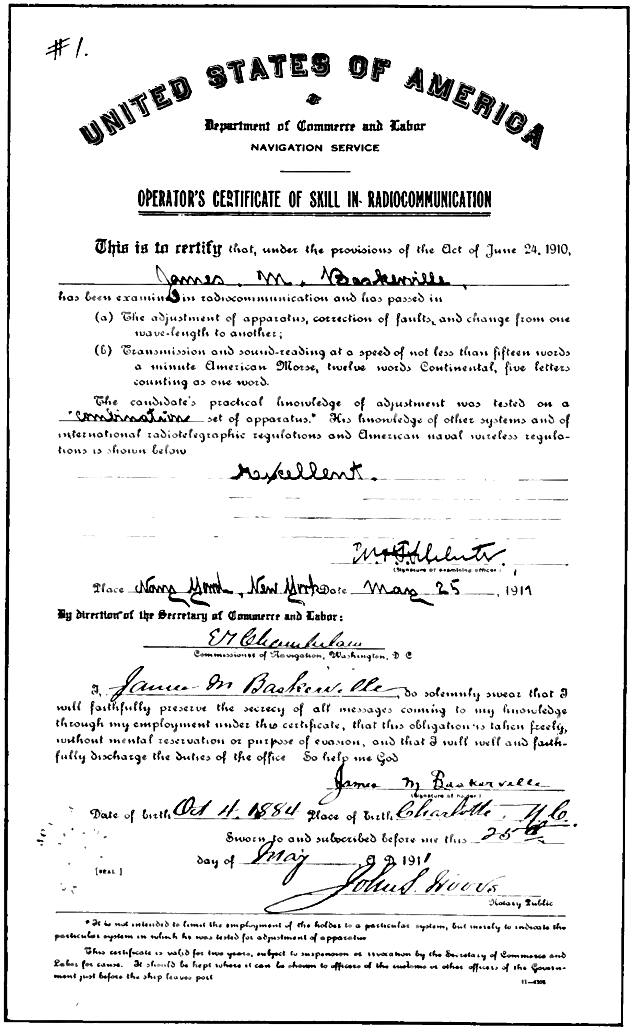 #1.
UNITED STATES OF AMERICA
Department of Commerce and Labor
NAVIGATION SERVICE
OPERATOR'S CERTIFICATE OF SKILL IN RADIOCOMMUNICATION
This is to certify that, under the provisions of the Act of June 24, 1910,
James M. Baskerville,
has been examined in radiocommunication and has passed in
(a) The adjustment of apparatus, correction of faults, and change from one
wave-length to another;
(b) Transmission and sound-reading at a speed of not less than fifteen words
a minute American Morse, twelve words Continental, five letters
counting as one word.
The candidate's practical knowledge of adjustment was tested on a
"combination set of apparatus.* His knowledge of other systems and of
international radiotelegraphic regulations and American naval wireless regula-
tions is shown below
Excellent.
(Signature of examining officer)
Place Navy Yard, New York Date May 25, 1911
By direction of the Secretary of Commerce and Labor:
Chamberlain
Commissioner of Navigation, Washington, D C
I, James M Baskerville, do solemnly swear that I
will faithfully preserve the secrecy of all messages coming to my knowledge
through my employment under this certificate, that this obligation is taken freely,
without mental reservation or purpose of evasion, and that I will well and faith-
fully discharge the duties of the office So help me God
James M Baskerville
(Signature of holder)
Date of birth Oct 4. 1884 Place of birth Charlotte, N.C.
Sworn to and subscribed before me this 25th
day of May A D 1911
[SEAL]
John S.
Notary Public
* It is not intended to limit the employment of the holder to a particular system, but merely to indicate the
particular system in which he was tested for adjustment of apparatus
This certificate is valid for two years, subject to suspension or revocation by the Secretary of Commerce and
Labor for cause. It should be kept where it can be shown to officers of the customs or other officers of the Govern-
ment just before the ship leaves port